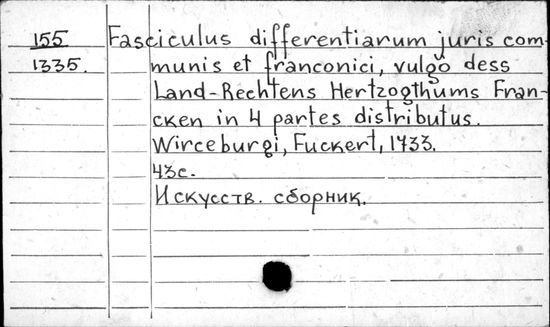 155 Fasciculus differentiarum juris com-
1335. munis et franconici, vulgö dess
Land-Rechtens Hertzogthums Fran-
cken in 4 partes distributus.
Wirceburgi, Fuckert, 1733.
43с.
Искусств. сборник.